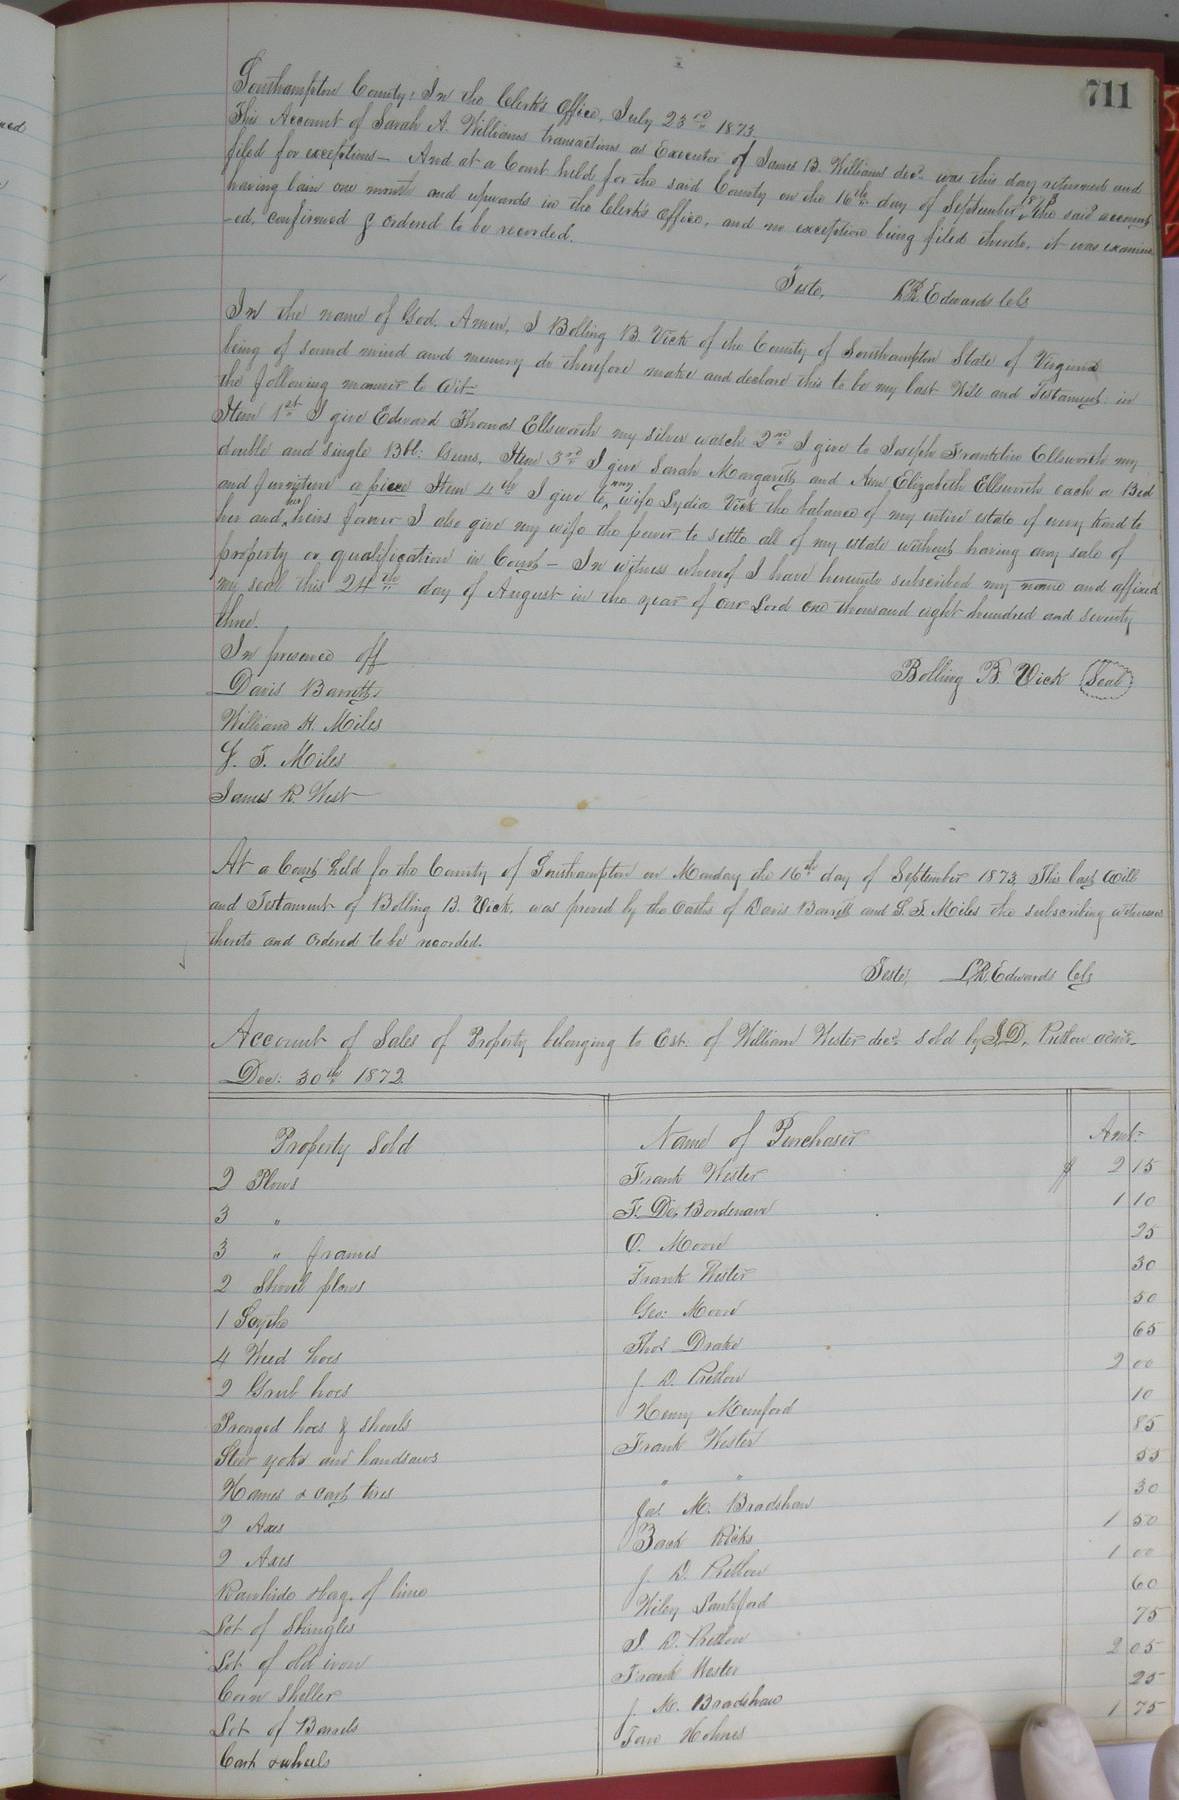 711
Southampton County: In the Clerk's Office, July 23rd 1873.
This Account of Sarah A. Williams transactions as Executor of James B. Williams decd was this day returned and
filed for exceptions— And at a Court held for the said County on the 16th day of September 1873 the said account
having lain one month and upwards in the Clerk's Office, and no exception being filed thereto, it was examin-
-ed, confirmed & ordered to be recorded.
Teste, L.R. Edwards Clk
In the name of God, Amen, I Bolling B. Vick of the County of Southampton State of Virginia
being of sound mind and memory do therefore make and declare this to be my last Will and Testament in
the following manner to Wit—
Item 1st I give Edward Thomas Ellsworth my silver watch 2nd I give to Joseph Franklin Ellsworth my
double and single Bbl: Guns. Item 3rd I give Sarah Margarett and Ann Elizabeth Ellsworth each a Bed
and furniture a piece Item 4th I give to my wife Lydia Vick the balance of my entire estate of every kind to
her and her heirs forever I also give my wife the power to settle all of my estate without having any sale of
property or qualification in Court— In witness whereof I have hereunto subscribed my name and affixed
my seal this 24th day of August in the year of our Lord one thousand eight hundred and seventy
three.
In presence off
Bolling B. Vick (Seal)
Davis Barrett,
William H. Miles
J. T. Miles
James R. West
At a Court held for the County of Southampton on Monday the 16th day of September 1873, This last Will
and Testament of Bolling B. Vick, was proved by the Oaths of Davis Barrett and J. T. Miles the subscribing witnesses
thereto and ordered to be recorded.
Teste, L.R. Edwards Clk
Account of Sales of Property belonging to Est. of William Wester decd sold by J. D. Pretlow admr—
Dec: 30th 1872.
Property Sold Name of Purchaser Amt:
2 Plows Frank Wester $ 2 15
3 " F. De. Bordenave 1 10
3 " frames O. Moore 25
2 Shovel plows Frank Wester 30
1 Scythe Geo: Moore 50
4 Weed hoes Thos Drake 65
2 Grub hoes J. D. Pretlow 2 00
Pronged hoes & shovels Henry Munford 10
Steer yoke and handsaws Frank Wester 85
Hames & cart tires " " 55
2 Axes Jas. M. Bradshaw 30
2 Axes Zack Ricks 1 50
Rawhide & bag. of lime J. D. Pretlow 1 00
Lot of Shingles Wiley Lankford 60
Lot of old iron J. D. Pretlow 75
Corn Sheller Frank Wester 2 05
Lot of Barrels J. M. Bradshaw 25
Cart & wheels Tom Holmes 1 75